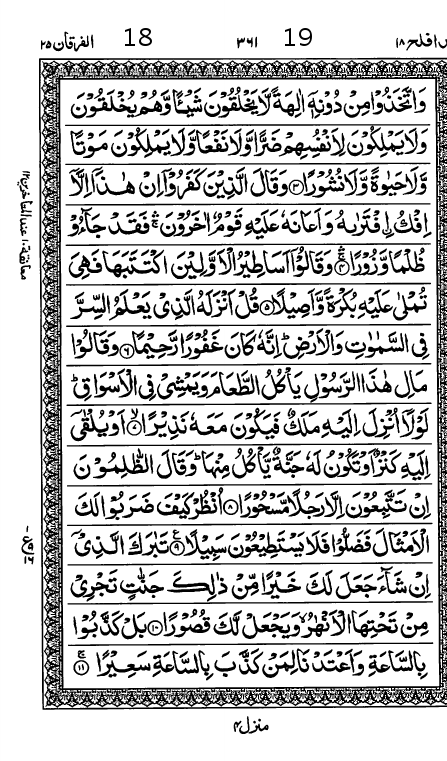 قد افلح ١٨ 19 ٣٦١ 18 الفرقان ٢٥
وَاتَّخَذُوْا مِنْ دُوْنِهٖۤ اٰلِهَةً لَّا يَخْلُقُوْنَ شَيْـًٔا وَّهُمْ يُخْلَقُوْنَ
وَلَا يَمْلِكُوْنَ لِاَنْفُسِهِمْ ضَرًّا وَّلَا نَفْعًا وَّلَا يَمْلِكُوْنَ مَوْتًا
وَّلَا حَيٰوةً وَّلَا نُشُوْرًا ﴿٣﴾ وَقَالَ الَّذِيْنَ كَفَرُوْۤا اِنْ هٰذَاۤ اِلَّاۤ
اِفْكُ اِ۟فْتَرٰىهُ وَاَعَانَهٗ عَلَيْهِ قَوْمٌ اٰخَرُوْنَ ۛۚ فَقَدْ جَآءُوْ
ظُلْمًا وَّزُوْرًا ۛۚ ﴿٤﴾ وَقَالُوْۤا اَسَاطِيْرُ الْاَوَّلِيْنَ اكْتَتَبَهَا فَهِيَ
تُمْلٰى عَلَيْهِ بُكْرَةً وَّاَصِيْلًا ﴿٥﴾ قُلْ اَنْزَلَهُ الَّذِيْ يَعْلَمُ السِّرَّ
فِي السَّمٰوٰتِ وَالْاَرْضِ ؕ اِنَّهٗ كَانَ غَفُوْرًا رَّحِيْمًا ﴿٦﴾ وَقَالُوْا
مَالِ هٰذَا الرَّسُوْلِ يَاْكُلُ الطَّعَامَ وَيَمْشِيْ فِي الْاَسْوَاقِ ؕ
لَوْلَاۤ اُنْزِلَ اِلَيْهِ مَلَكٌ فَيَكُوْنَ مَعَهٗ نَذِيْرًا ﴿٧﴾ اَوْ يُلْقٰۤى
اِلَيْهِ كَنْزٌ اَوْ تَكُوْنُ لَهٗ جَنَّةٌ يَّاْكُلُ مِنْهَا ؕ وَقَالَ الظّٰلِمُوْنَ
اِنْ تَتَّبِعُوْنَ اِلَّا رَجُلًا مَّسْحُوْرًا ﴿٨﴾ اُنْظُرْ كَيْفَ ضَرَبُوْا لَكَ
الْاَمْثَالَ فَضَلُّوْا فَلَا يَسْتَطِيْعُوْنَ سَبِيْلًا ﴿٩﴾ تَبٰرَكَ الَّذِيْۤ
اِنْ شَآءَ جَعَلَ لَكَ خَيْرًا مِّنْ ذٰلِكَ جَنّٰتٍ تَجْرِيْ
مِنْ تَحْتِهَا الْاَنْهٰرُ ۙ وَيَجْعَلْ لَّكَ قُصُوْرًا ﴿١٠﴾ بَلْ كَذَّبُوْا
بِالسَّاعَةِ ۟ وَاَعْتَدْنَا لِمَنْ كَذَّبَ بِالسَّاعَةِ سَعِيْرًا ﴿١١﴾
منزل ٤